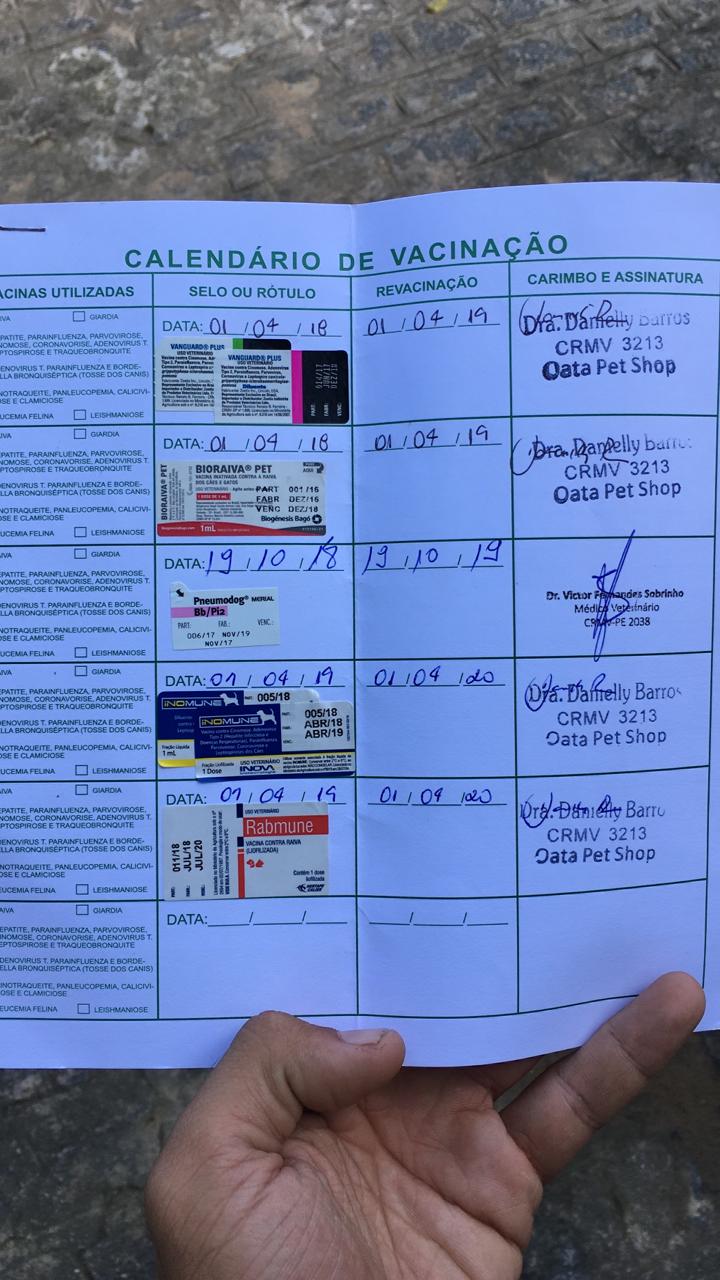 CALENDÁRIO DE VACINAÇÃO
ACINAS UTILIZADAS SELO OU RÓTULO REVACINAÇÃO CARIMBO E ASSINATURA
IVA GIARDIA
PATITE, PARAINFLUENZA, PARVOVIROSE,
NOMOSE, CORONAVIROSE, ADENOVIRUS T.
PTOSPIROSE E TRAQUEOBRONQUITE
DENOVIRUS T. PARAINFLUENZA E BORDE-
ELLA BRONQUISÉPTICA (TOSSE DOS CANIS)
NOTRAQUEITE, PANLEUCOPEMIA, CALICIVI-
OSE E CLAMICIOSE
UCEMIA FELINA LEISHMANIOSE
DATA: 01 / 04 / 18
VANGUARD® PLUS
USO VETERINÁRIO
VANGUARD® PLUS
USO VETERINÁRIO
Diluente
PART.
FABR.
VENC.
01 / 04 / 19
Dra. Danielly Barros
CRMV 3213
Oata Pet Shop
GIARDIA
PATITE, PARAINFLUENZA, PARVOVIROSE,
NOMOSE, CORONAVIROSE, ADENOVIRUS T.
PTOSPIROSE E TRAQUEOBRONQUITE
DENOVIRUS T. PARAINFLUENZA E BORDE-
ELLA BRONQUISÉPTICA (TOSSE DOS CANIS)
NOTRAQUEITE, PANLEUCOPEMIA, CALICIVI-
OSE E CLAMICIOSE
UCEMIA FELINA LEISHMANIOSE
DATA: 01 / 04 / 18
BIORAIVA® PET
BIORAIVA® PET
VACINA INATIVADA CONTRA A RAIVA
DOS CÃES E GATOS
1 DOSE DE 1 mL
PART 001/16
FABR DEZ/16
VENC DEZ/18
Biogénesis Bagó
1mL
01 / 04 / 19
Dra. Danielly Barros
CRMV 3213
Oata Pet Shop
IVA GIARDIA
PATITE, PARAINFLUENZA, PARVOVIROSE,
NOMOSE, CORONAVIROSE, ADENOVIRUS T.
PTOSPIROSE E TRAQUEOBRONQUITE
DENOVIRUS T. PARAINFLUENZA E BORDE-
ELLA BRONQUISÉPTICA (TOSSE DOS CANIS)
NOTRAQUEITE, PANLEUCOPEMIA, CALICIVI-
OSE E CLAMICIOSE
UCEMIA FELINA LEISHMANIOSE
DATA: 19 / 10 / 18
Pneumodog® MERIAL
Bb/Pi2
PART: FAB.: VENC.:
006/17 NOV/19
NOV/17
19 / 10 / 19
Dr. Victor Fernandes Sobrinho
Médico Veterinário
CRMV-PE 2038
IVA GIARDIA
PATITE, PARAINFLUENZA, PARVOVIROSE,
NOMOSE, CORONAVIROSE, ADENOVIRUS T.
PTOSPIROSE E TRAQUEOBRONQUITE
DENOVIRUS T. PARAINFLUENZA E BORDE-
ELLA BRONQUISÉPTICA (TOSSE DOS CANIS)
NOTRAQUEITE, PANLEUCOPEMIA, CALICIVI-
OSE E CLAMICIOSE
UCEMIA FELINA LEISHMANIOSE
DATA: 01 / 04 / 19
iNOMUNE
PART: 005/18
iNOMUNE
005/18
ABR/18
ABR/19
Fração Líquida
1 mL
Fração Liofilizada
1 Dose
USO VETERINÁRIO
INOVA
01 / 04 / 20
Dra. Danielly Barros
CRMV 3213
Oata Pet Shop
IVA GIARDIA
PATITE, PARAINFLUENZA, PARVOVIROSE,
NOMOSE, CORONAVIROSE, ADENOVIRUS T.
PTOSPIROSE E TRAQUEOBRONQUITE
DENOVIRUS T. PARAINFLUENZA E BORDE-
ELLA BRONQUISÉPTICA (TOSSE DOS CANIS)
NOTRAQUEITE, PANLEUCOPEMIA, CALICIVI-
OSE E CLAMICIOSE
UCEMIA FELINA LEISHMANIOSE
DATA: 01 / 04 / 19
PART: 011/18
FABR: JUL/18
VENC: JUL/20
USO VETERINÁRIO
Rabmune
VACINA CONTRA RAIVA
(LIOFILIZADA)
Contém 1 dose
liofilizada
01 / 04 / 20
Dra. Danielly Barro
CRMV 3213
Oata Pet Shop
IVA GIARDIA
PATITE, PARAINFLUENZA, PARVOVIROSE,
NOMOSE, CORONAVIROSE, ADENOVIRUS T.
PTOSPIROSE E TRAQUEOBRONQUITE
DENOVIRUS T. PARAINFLUENZA E BORDE-
ELLA BRONQUISÉPTICA (TOSSE DOS CANIS)
NOTRAQUEITE, PANLEUCOPEMIA, CALICIVI-
OSE E CLAMICIOSE
UCEMIA FELINA LEISHMANIOSE
DATA: / /
/ /